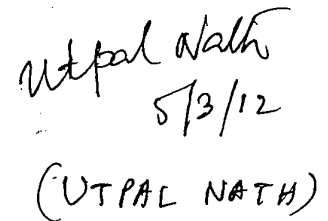 Utpal Nath
5/3/12
(UTPAL NATH)